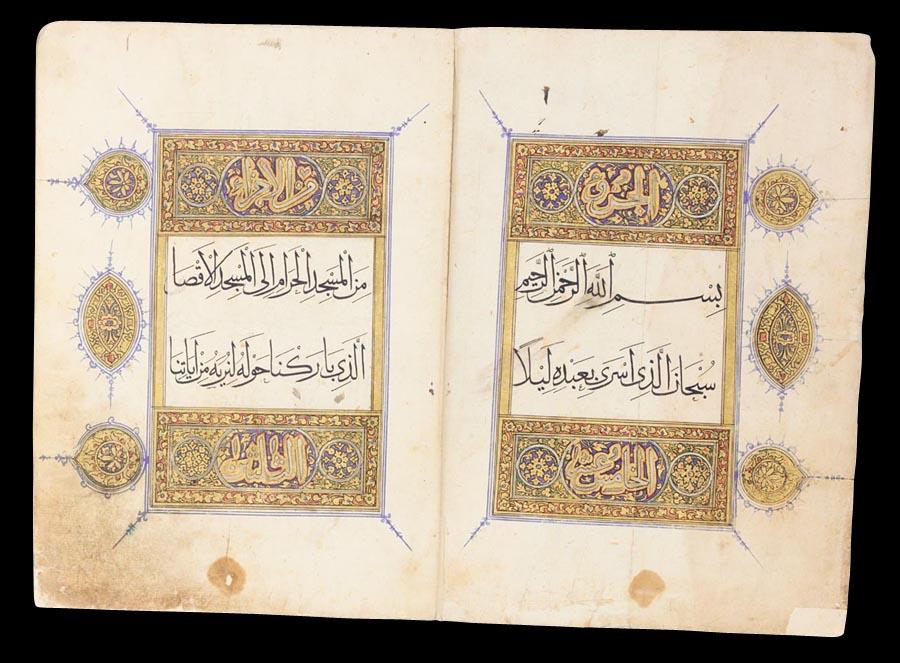 الجزء
بِسْمِ اللَّهِ الرَّحْمَنِ الرَّحِيمِ
سُبْحَانَ الَّذِى اَسْرَى بِعَبْدِهِ لَيْلًا
الخامس عشر
من الاجزاء
مِنَ الْمَسْجِدِ الْحَرَامِ اِلَى الْمَسْجِدِ الْاَقْصَا
الَّذِى بَارَكْنَا حَوْلَهُ لِنُرِيَهُ مِنْ اٰيَاتِنَا
الثلاثين